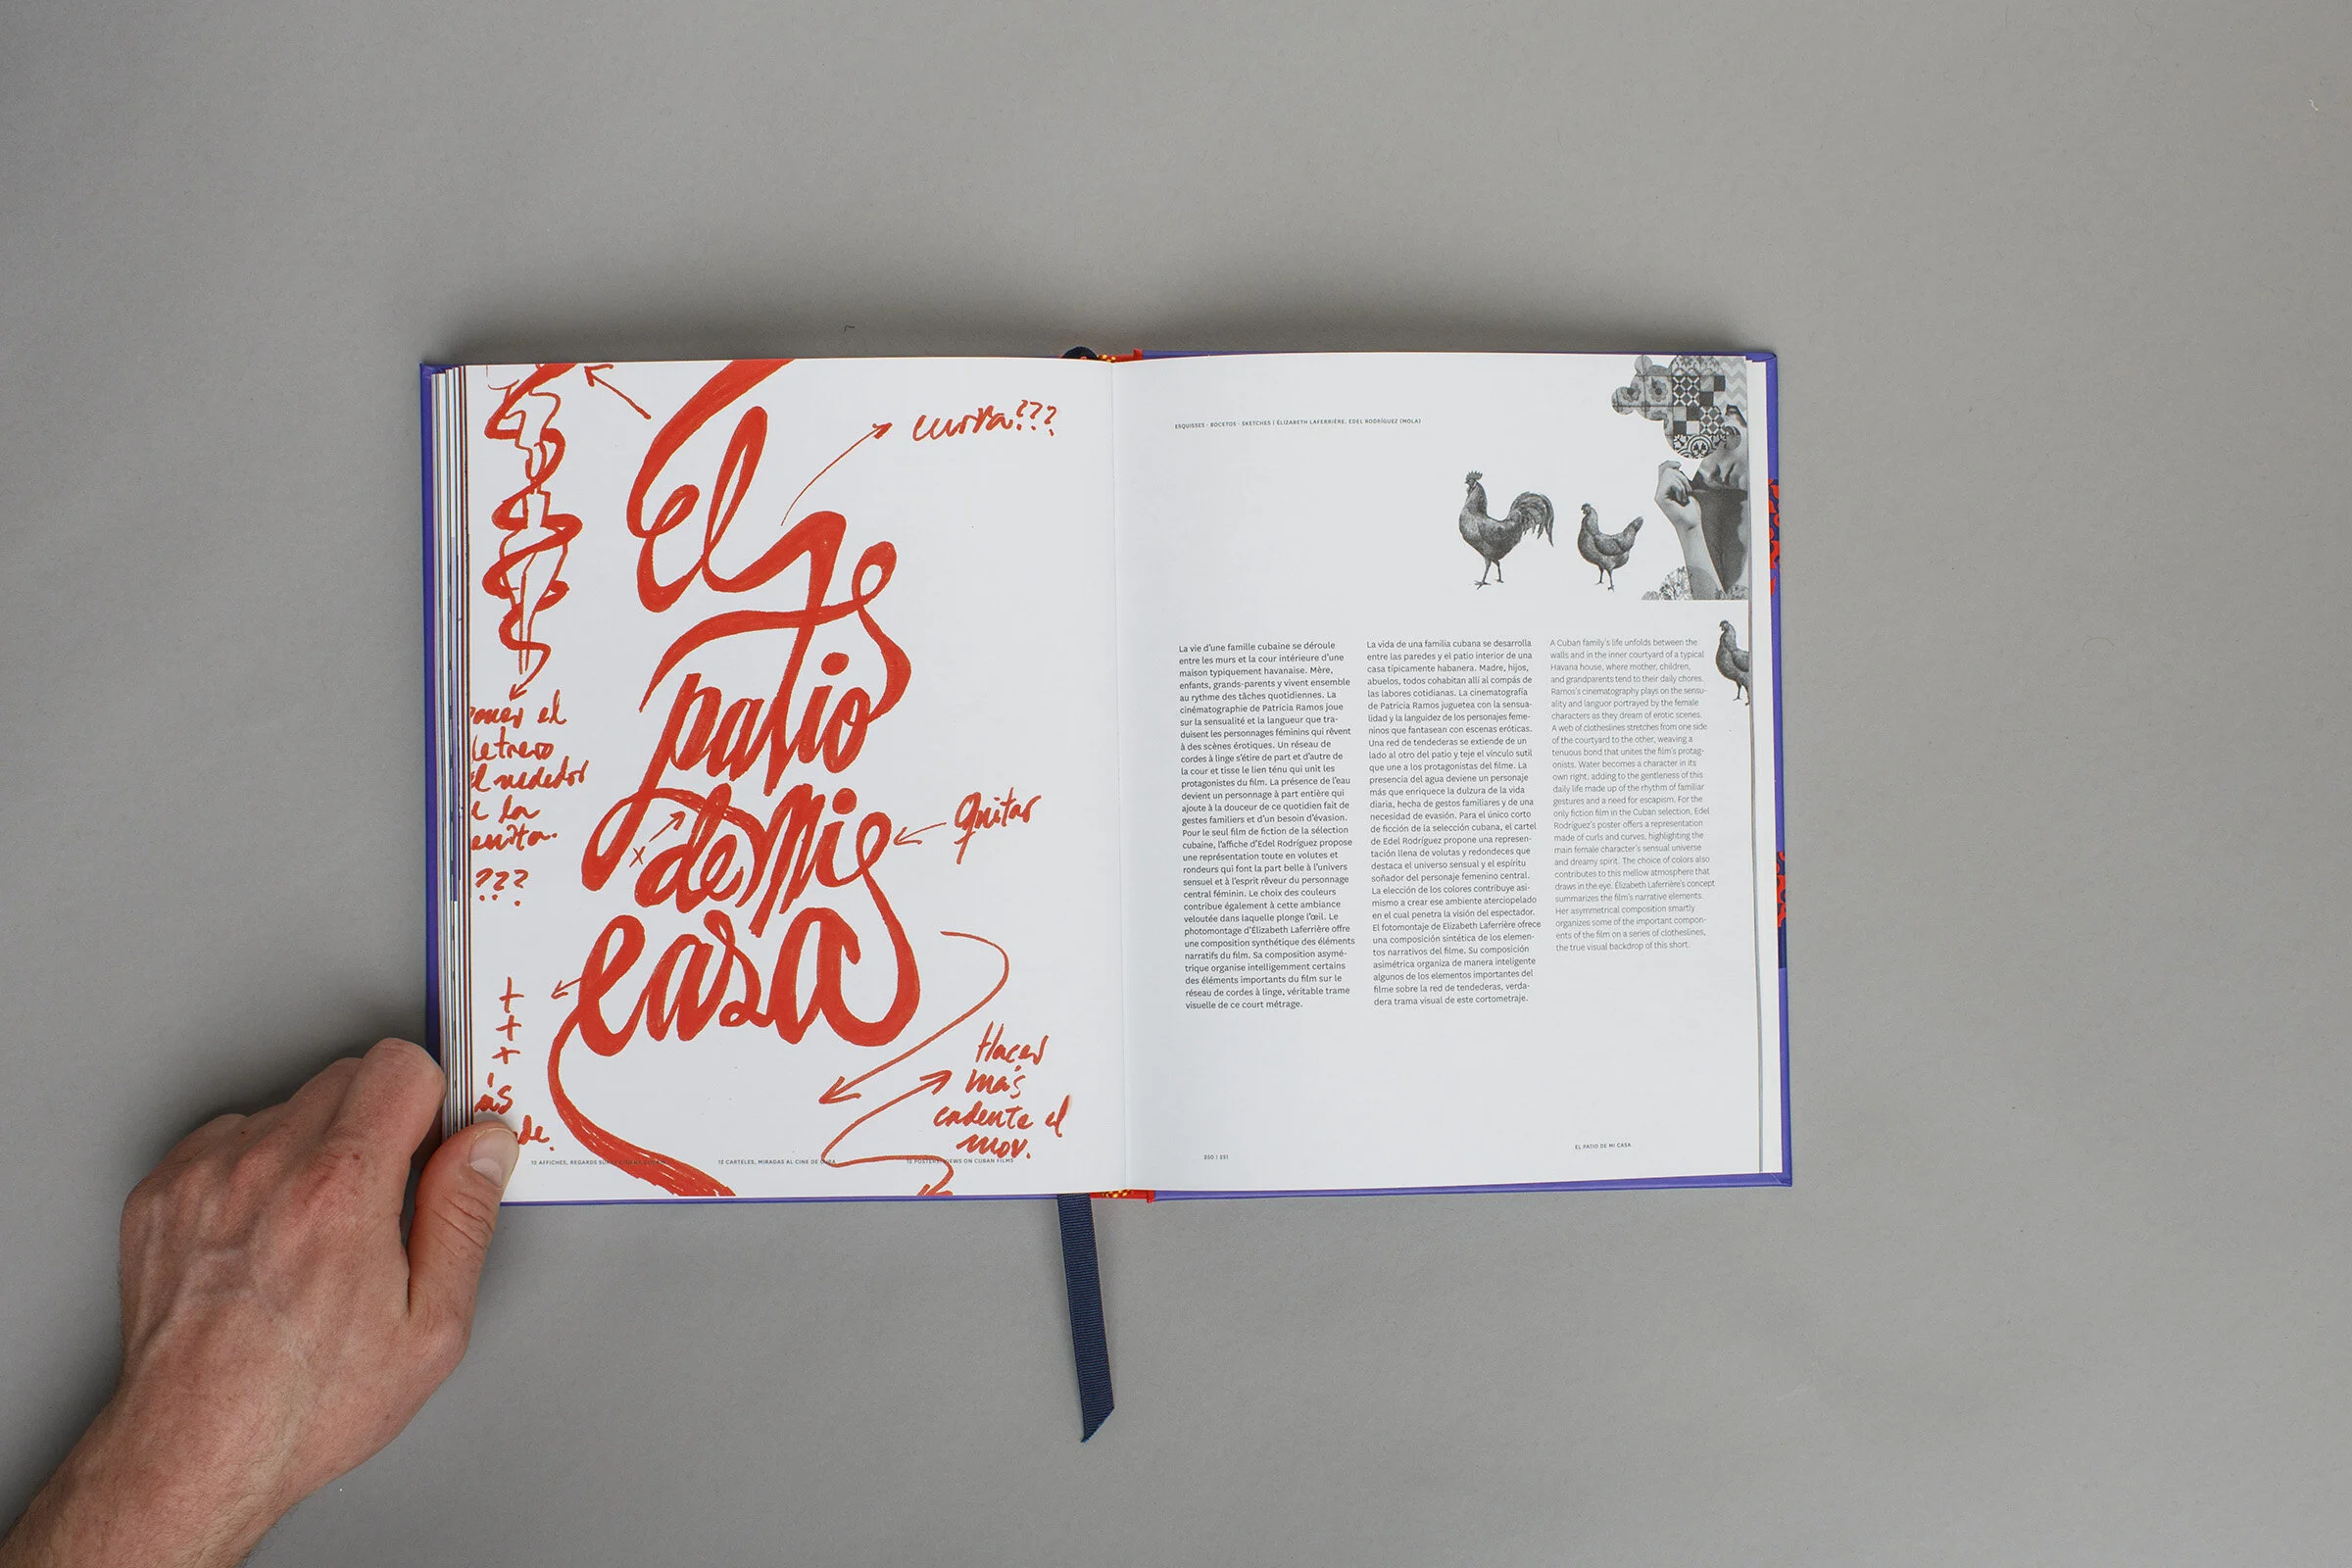 curva???
El
patio
de mi
casa
letrero
???
quitar
+
+
+
x
Hacer
más
cadente el
mov.
12 AFFICHES, REGARDS
12 CARTELES, MIRADAS AL CINE DE CUBA
12 POSTERS, VIEWS ON CUBAN FILMS
ESQUISSES · BOCETOS · SKETCHES | ÉLIZABETH LAFERRIÈRE, EDEL RODRÍGUEZ (MOLA)
La vie d'une famille cubaine se déroule
entre les murs et la cour intérieure d'une
maison typiquement havanaise. Mère,
enfants, grands-parents y vivent ensemble
au rythme des tâches quotidiennes. La
cinématographie de Patricia Ramos joue
sur la sensualité et la langueur que tra-
duisent les personnages féminins qui rêvent
à des scènes érotiques. Un réseau de
cordes à linge s'étire de part et d'autre de
la cour et tisse le lien ténu qui unit les
protagonistes du film. La présence de l'eau
devient un personnage à part entière qui
ajoute à la douceur de ce quotidien fait de
gestes familiers et d'un besoin d'évasion.
Pour le seul film de fiction de la sélection
cubaine, l'affiche d'Edel Rodríguez propose
une représentation toute en volutes et
rondeurs qui font la part belle à l'univers
sensuel et à l'esprit rêveur du personnage
central féminin. Le choix des couleurs
contribue également à cette ambiance
veloutée dans laquelle plonge l'œil. Le
photomontage d'Élizabeth Laferrière offre
une composition synthétique des éléments
narratifs du film. Sa composition asymé-
trique organise intelligemment certains
des éléments importants du film sur le
réseau de cordes à linge, véritable trame
visuelle de ce court métrage.
La vida de una familia cubana se desarrolla
entre las paredes y el patio interior de una
casa típicamente habanera. Madre, hijos,
abuelos, todos cohabitan allí al compás de
las labores cotidianas. La cinematografía
de Patricia Ramos juguetea con la sensua-
lidad y la languidez de los personajes feme-
ninos que fantasean con escenas eróticas.
Una red de tendederas se extiende de un
lado al otro del patio y teje el vínculo sutil
que une a los protagonistas del filme. La
presencia del agua deviene un personaje
más que enriquece la dulzura de la vida
diaria, hecha de gestos familiares y de una
necesidad de evasión. Para el único corto
de ficción de la selección cubana, el cartel
de Edel Rodríguez propone una represen-
tación llena de volutas y redondeces que
destaca el universo sensual y el espíritu
soñador del personaje femenino central.
La elección de los colores contribuye asi-
mismo a crear ese ambiente aterciopelado
en el cual penetra la visión del espectador.
El fotomontaje de Elizabeth Laferrière ofrece
una composición sintética de los elemen-
tos narrativos del filme. Su composición
asimétrica organiza de manera inteligente
algunos de los elementos importantes del
filme sobre la red de tendederas, verda-
dera trama visual de este cortometraje.
A Cuban family's life unfolds between the
walls and in the inner courtyard of a typical
Havana house, where mother, children,
and grandparents tend to their daily chores.
Ramos's cinematography plays on the sensu-
ality and languor portrayed by the female
characters as they dream of erotic scenes.
A web of clotheslines stretches from one side
of the courtyard to the other, weaving a
tenuous bond that unites the film's protag-
onists. Water becomes a character in its
own right, adding to the gentleness of this
daily life made up of the rhythm of familiar
gestures and a need for escapism. For the
only fiction film in the Cuban selection, Edel
Rodríguez's poster offers a representation
made of curls and curves, highlighting the
main female character's sensual universe
and dreamy spirit. The choice of colors also
contributes to this mellow atmosphere that
draws in the eye. Élizabeth Laferrière's concept
summarizes the film's narrative elements.
Her asymmetrical composition smartly
organizes some of the important compon-
ents of the film on a series of clotheslines,
the true visual backdrop of this short.
250 | 251
EL PATIO DE MI CASA